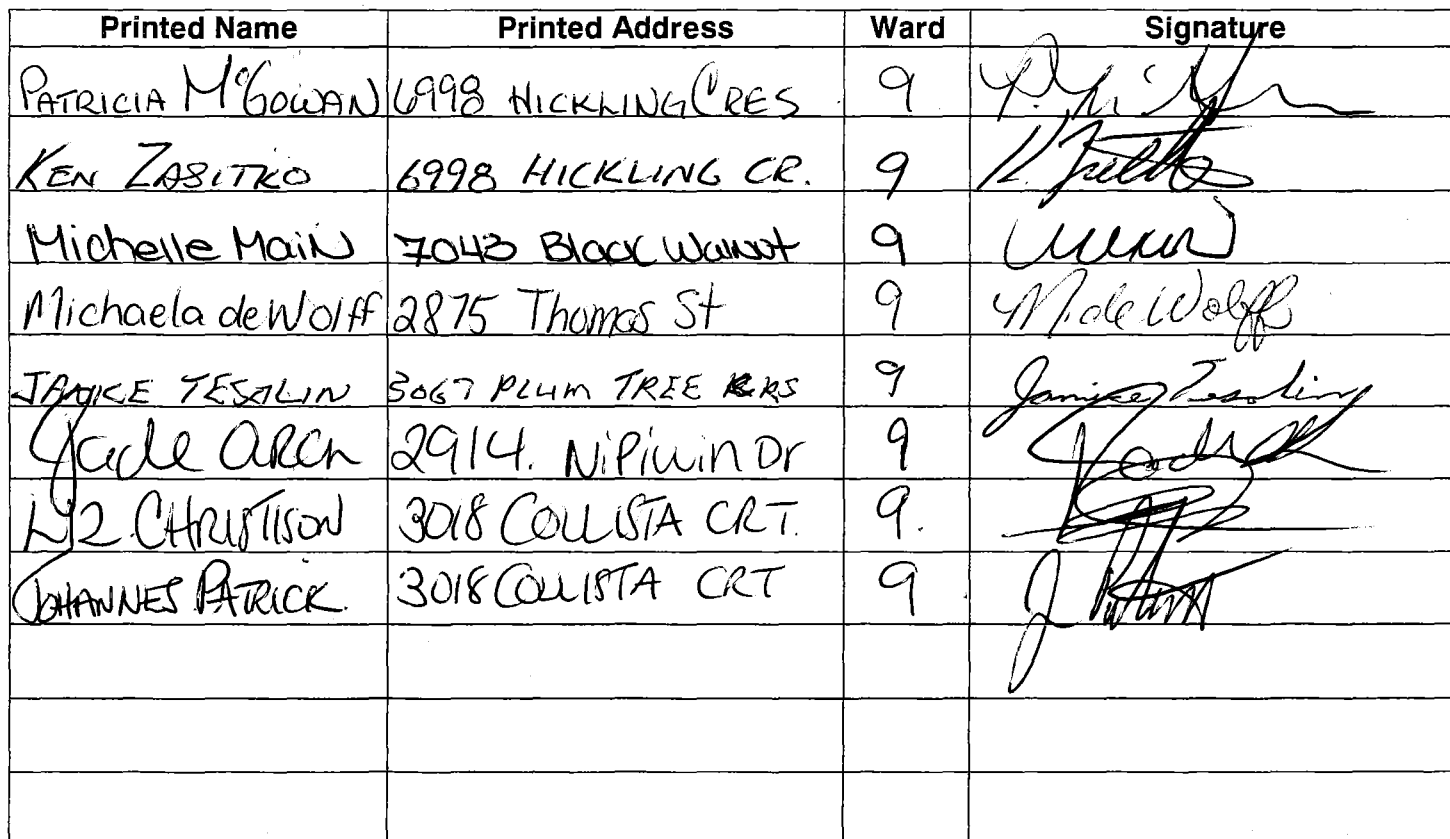 Printed Name Printed Address Ward Signature
PATRICIA McGOWAN 6998 HICKLING CRES 9
KEN ZABITKO 6998 HICKLING CR. 9
Michelle Main 7043 Black Walnut 9
Michaela de Wolff 2875 Thomas St 9 M. de Wolff
JANICE TESOLIN 3067 PLUM TREE CRS 9 Janice Tesolin
Jade ARCH 2914. NiPiwin Dr 9
LIZ CHRISTISON 3018 COLLISTA CRT. 9.
JOHANNES PATRICK 3018 COLLISTA CRT 9